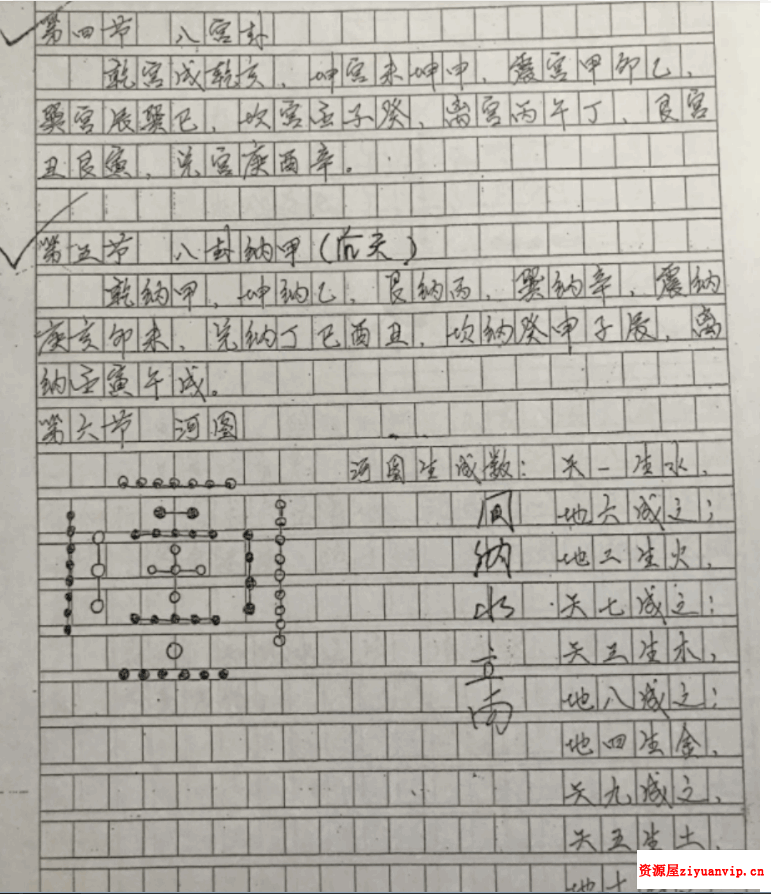 第四节 八宫卦
乾宫戌乾亥、坤宫未坤申、震宫甲卯乙、
巽宫辰巽巳、坎宫壬子癸、离宫丙午丁、艮宫
丑艮寅、兑宫庚酉辛。
第五节 八卦纳甲(后天)
乾纳甲、坤纳乙、艮纳丙、巽纳辛、震纳
庚亥卯未、兑纳丁巳酉丑、坎纳癸申子辰、离
纳壬寅午戌。
第六节 河图
河图生成数:天一生水、
地六成之;
地二生火、
天七成之;
天三生木、
地八成之;
地四生金、
天九成之、
天五生土、
地十
资源屋ziyuanvip.cn